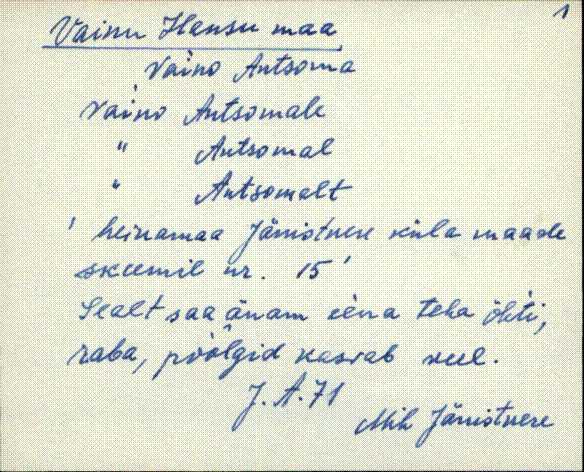 1
Vainu Hansu maa
Vaino Antsoma
Vaino Antsomale
" Antsomal
" Antsomalt
' heinamaa Jänistvere küla maade
skeemil nr. 15'
Sealt saa änam eina teha
raba, kasvab
J. A. 71
Mih Jänistvere